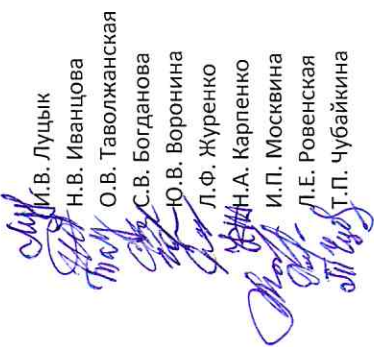 И.В. Луцык
Н.В. Иванцова
О.В. Таволжанская
С.В. Богданова
Ю.В. Воронина
Л.Ф. Журенко
Н.А. Карпенко
И.П. Москвина
Л.Е. Ровенская
Т.П. Чубайкина